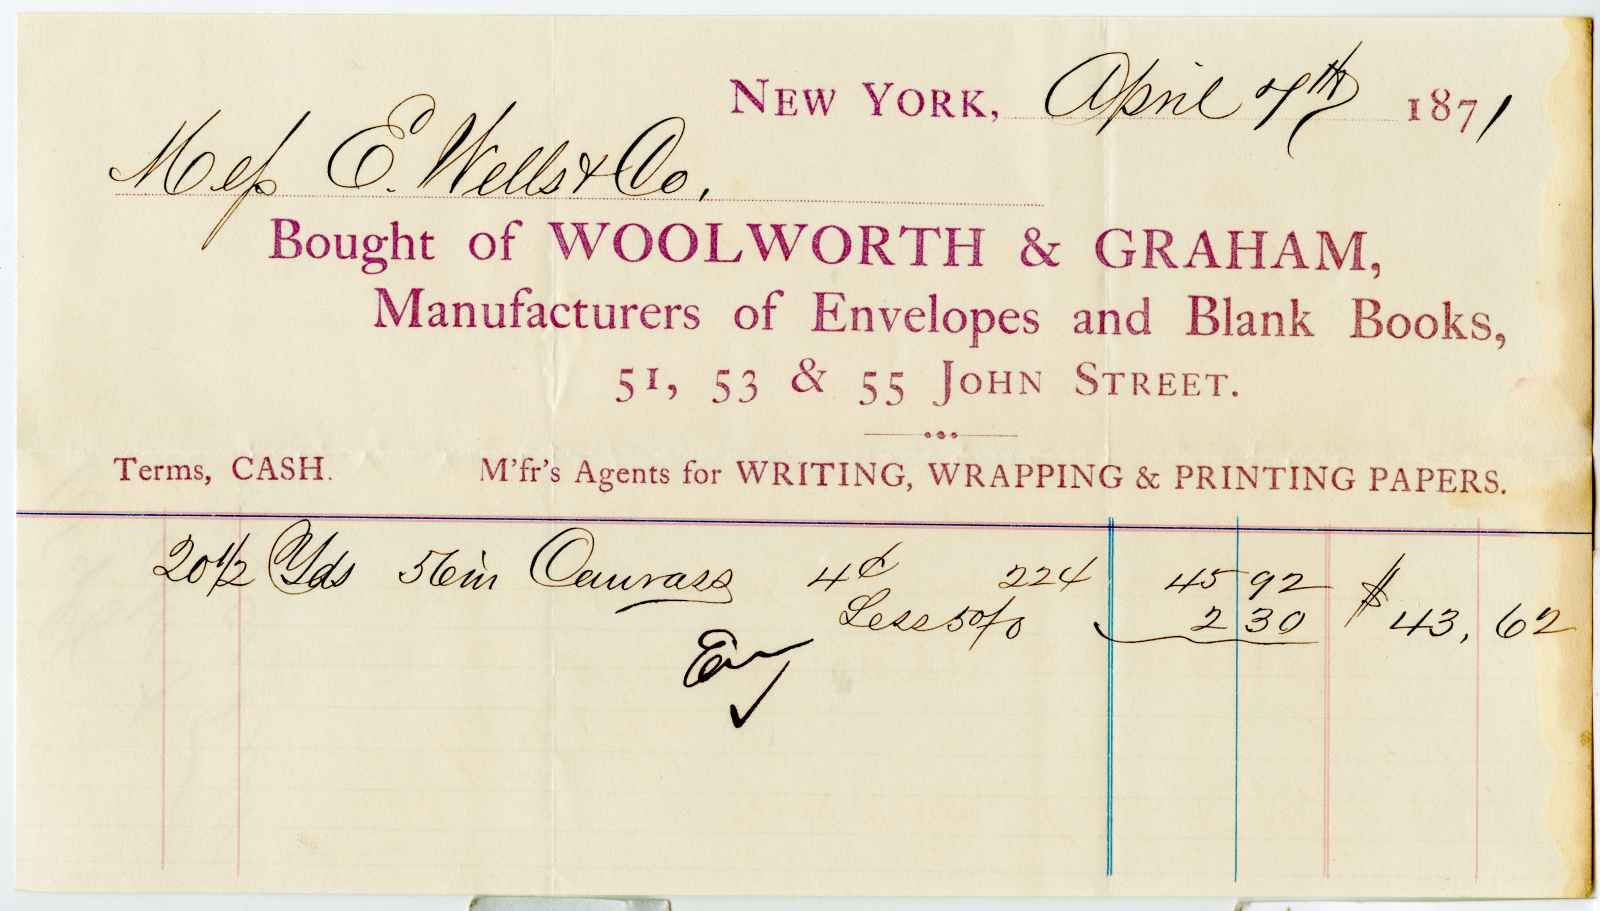 NEW YORK, April 7th 1871
Mess E. Wells & Co,
Bought of WOOLWORTH & GRAHAM,
Manufacturers of Envelopes and Blank Books,
51, 53 & 55 JOHN STREET.
Terms, CASH. M'fr's Agents for WRITING, WRAPPING & PRINTING PAPERS.
20 1/2 Yds 56in Canvass 4¢ 224 45 92
Less 5 o/o 2 30 $ 43,62